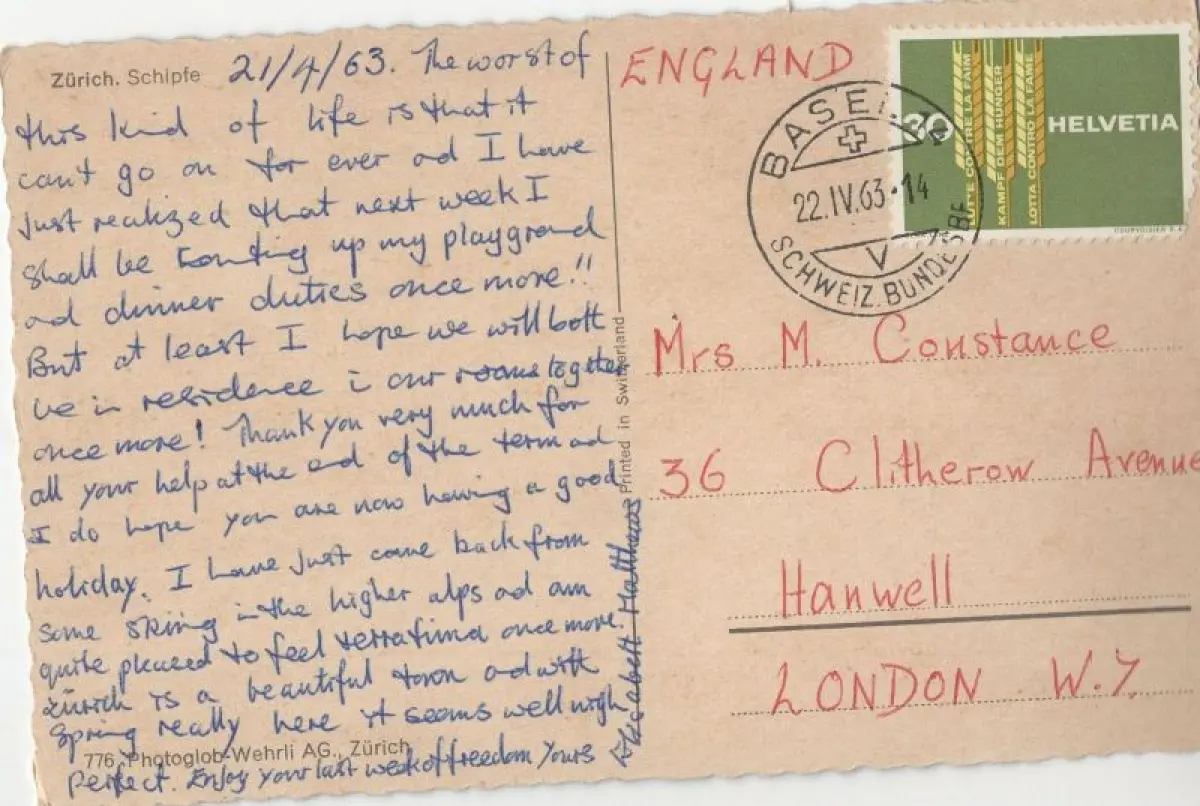 Zürich. Schipfe
21/4/63. The worst of
this kind of life is that it
can't go on for ever ad I have
just realized that next week I
shall be counting up my playground
ad dinner duties once more!!
But at least I hope we will both
be in residence i our rooms together
once more! Thank you very much for
all your help at the end of the term ad
I do hope you are now having a good
holiday. I have just come back from
some skiing in the higher alps ad am
quite pleased to feel terrafirma once more.
Zürich is a beautiful town ad with
Spring really here it seems well nigh
perfect. Enjoy your last week of freedom Yours
Elisabeth Matthews
776 Photoglob-Wehrli AG., Zürich
Printed in Switzerland
ENGLAND
Mrs M. Constance
36 Clitherow Avenue
Hanwell
LONDON W.7.
BASEL
22.IV.63-14
V
SCHWEIZ.BUNDESBF
30
LUTTE CONTRE LA FAIM
KAMPF DEM HUNGER
LOTTA CONTRO LA FAME
HELVETIA
COURVOISIER S.A.